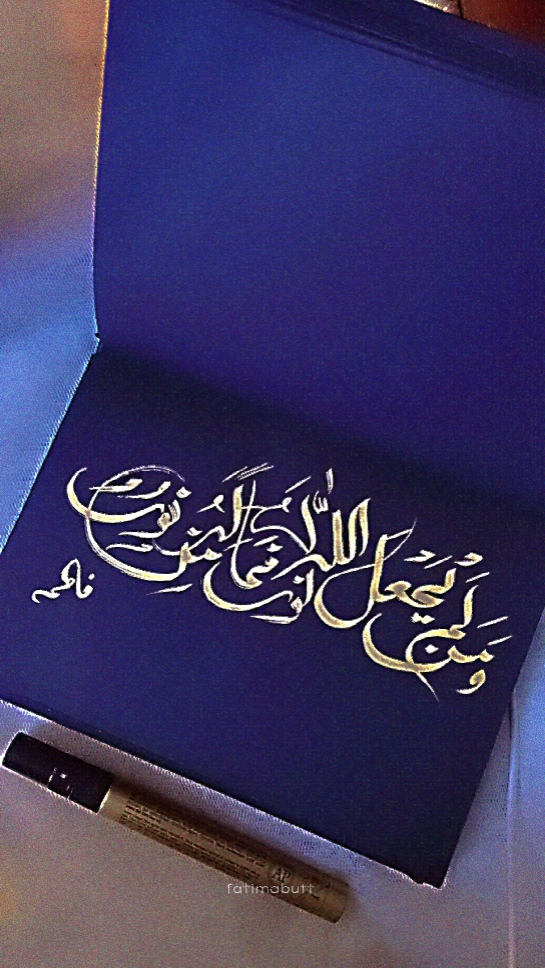 وَمَن لَّمْ يَجْعَلِ اللَّهُ لَهُ نُورًا فَمَا لَهُ مِن نُّورٍ
فاطمہ
AP
fatimabutt